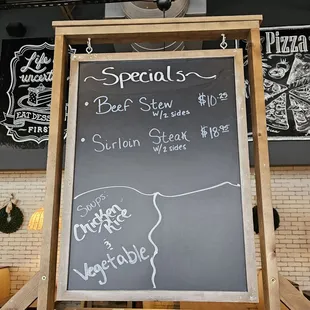 ~Specials~
• Beef Stew $10.25
w/2 sides
• Sirloin Steak $18.95
w/2 sides
Soups:
Chicken
Rice
&
Vegetable
Life
uncert
EAT DESS
FIRST
Pizza